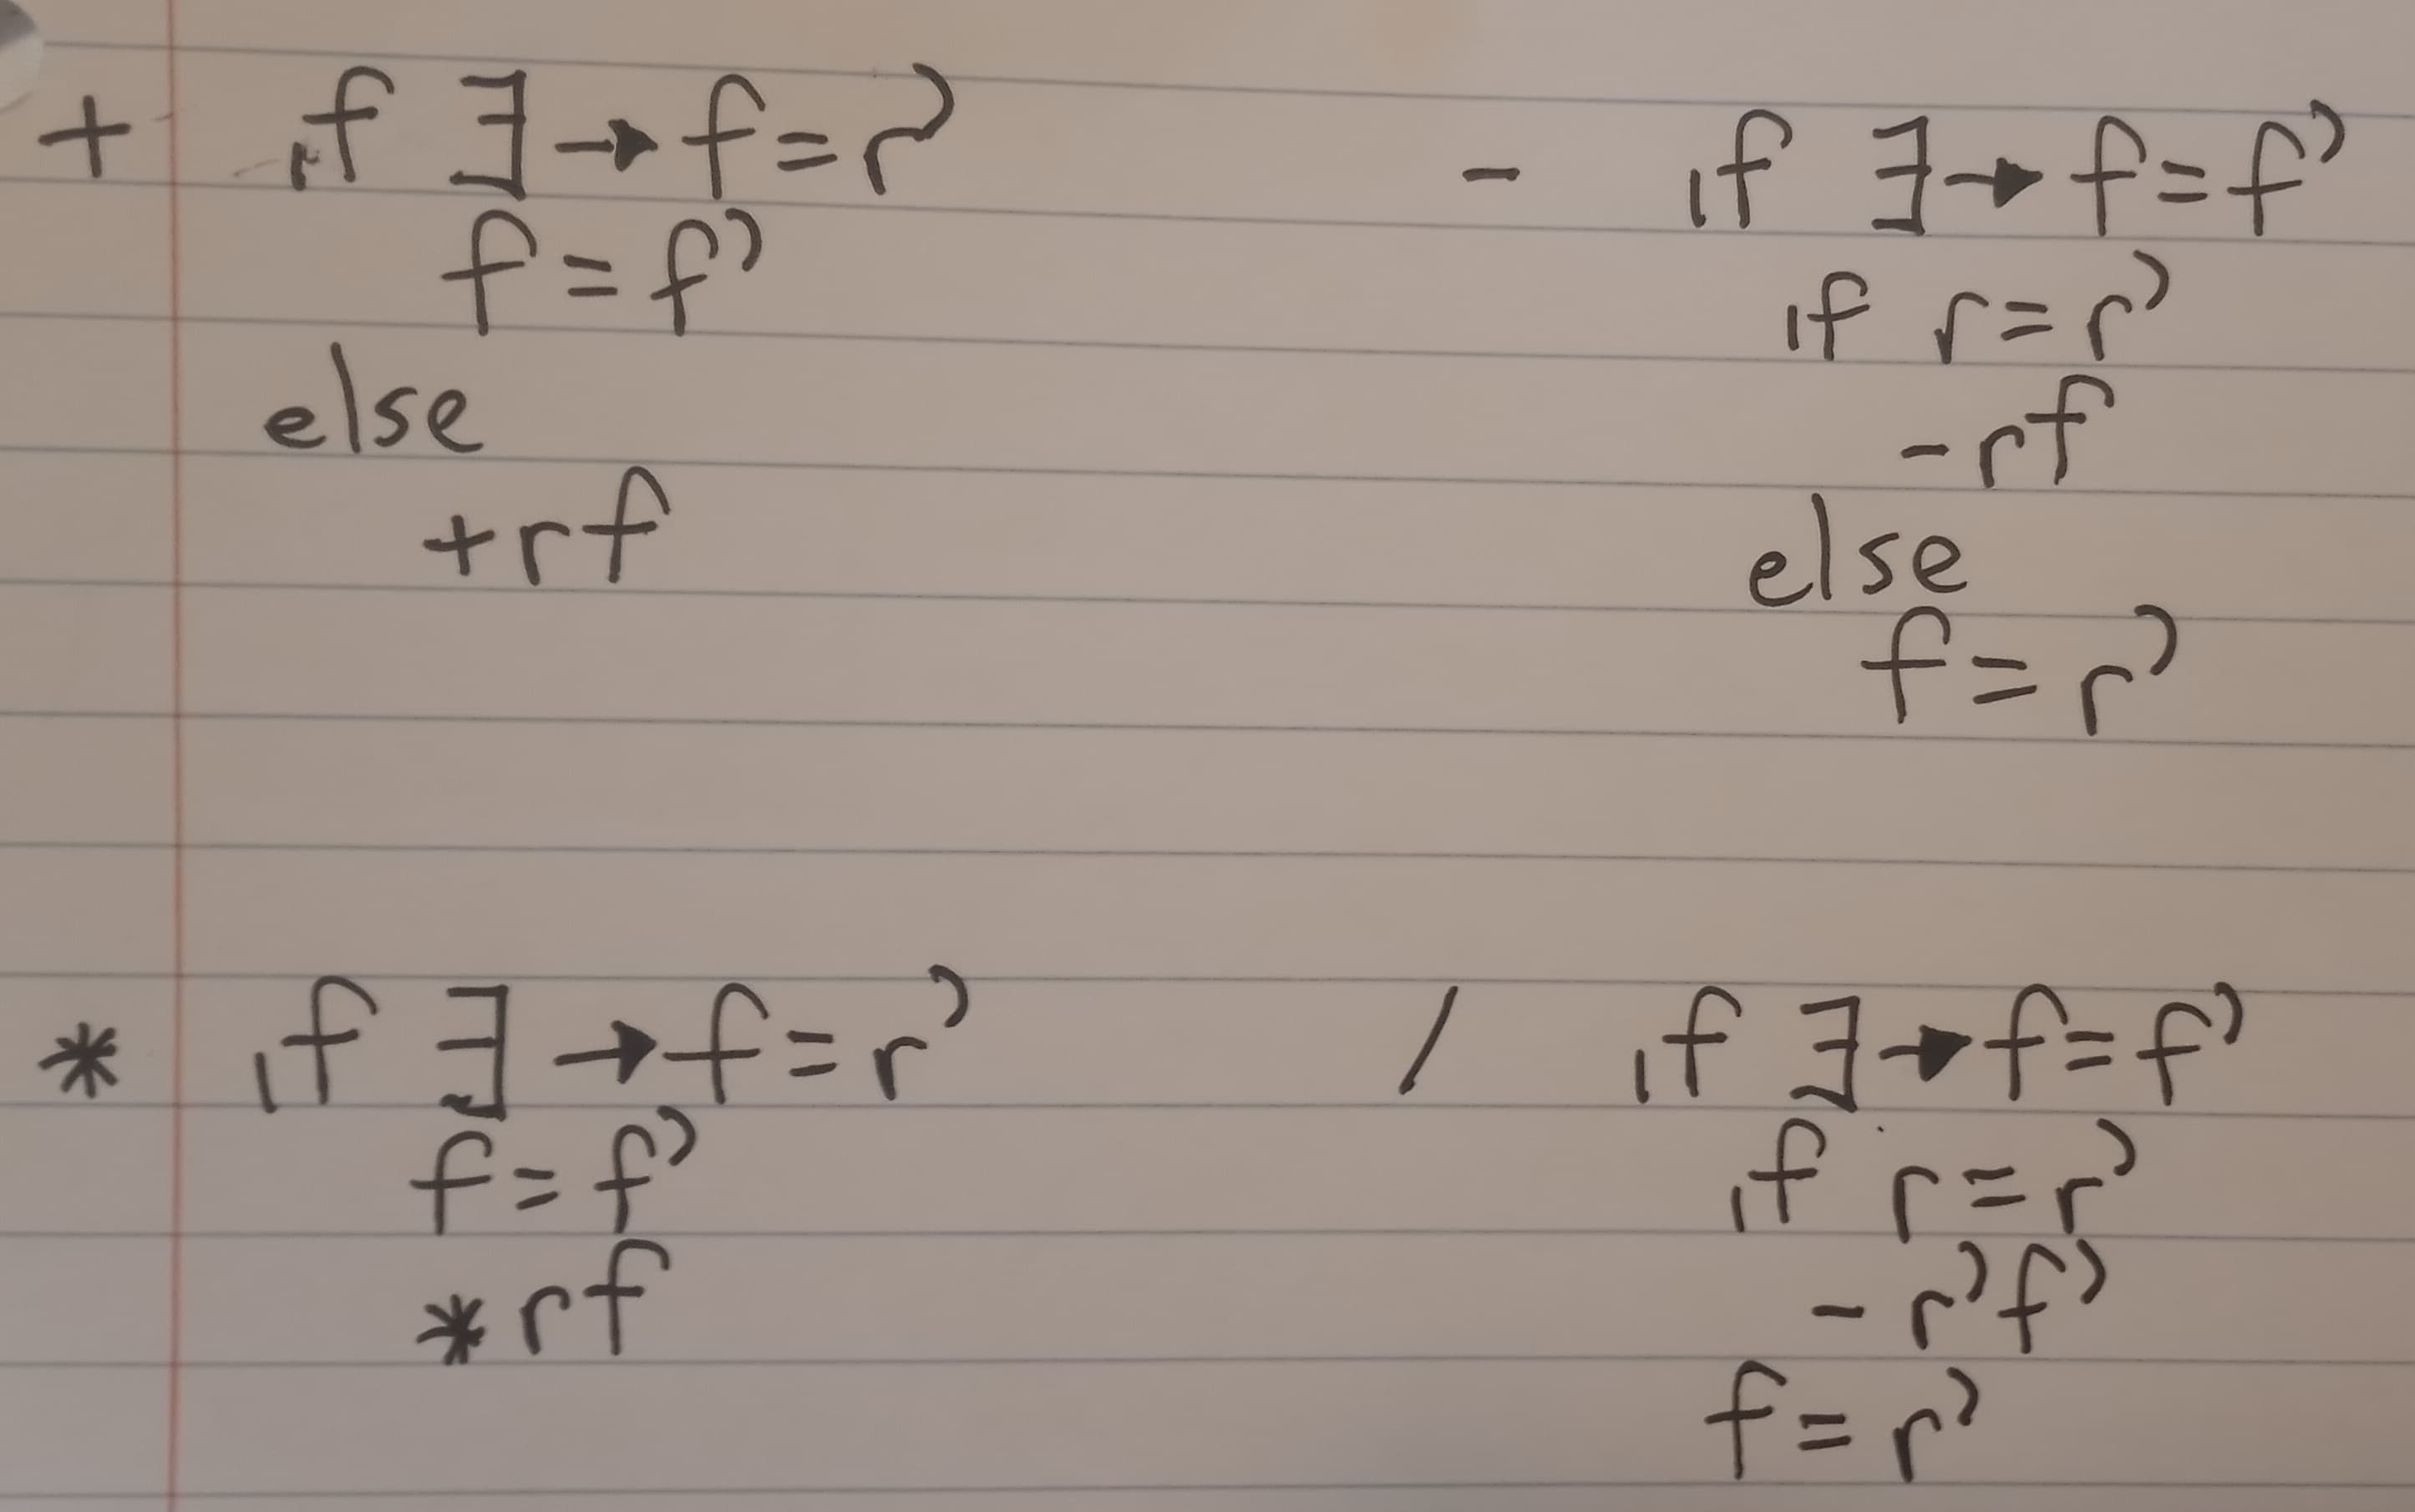 + if ∃→f=r'
f=f'
else
+rf
- if ∃→f=f'
if r=r'
-rf
else
f=r'
* if ∃→f=r'
f=f'
*rf
/ if ∃→f=f'
if r=r'
-r'f'
f=r'